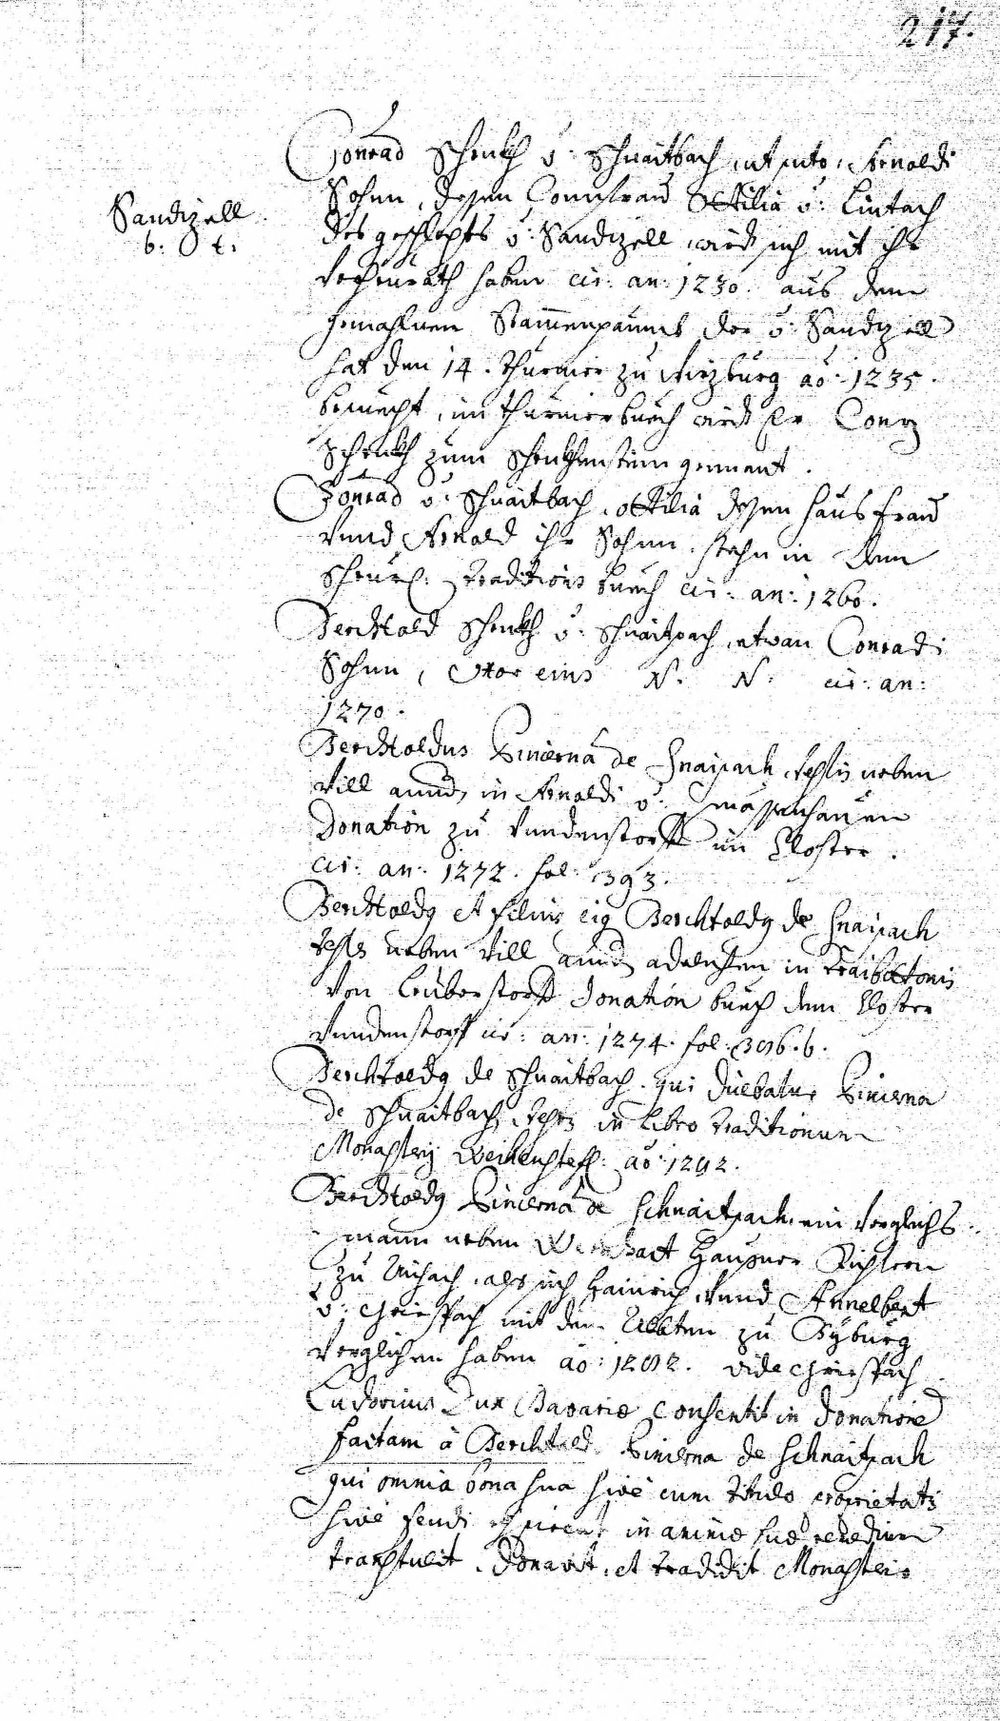 217.
Conrad Schenkh v: Schnaitbach, ut puto, Arnoldi
Sohnn, dessen Connfraud Ottilia v: Lintach
Sandizell
des geschlechts v: Sandizell, wirdt sich mit ihr
b. t.
verheurath haben cir: an: 1230. aus dem
gemahlnen Stammenpaumb der v: Sandizell
hat den 14. Thurnier zu Wirzburg aõ: 1235.
besuecht, im Thurnierbuech wirdt Er Conrz
Schenkh zum Schenkhenstein gennant.
Conrad v: Schnaitbach, Ottilia dessen haus fraud
vnnd Arnold ihr Sohnn. stehn in dem
Scheurf: traditions buech cir: an: 1260.
Berchtold Schenkh v: Schnaitpach, etwan Conradi
Sohnn, Uxor eius N. N. cir: an:
1270.
Berchtoldus Pincerna de Snaipach, testis neben
vill annd, in Arnoldi v: Massenhausen
Donation zu vnndenstorff im Closter.
cir: an: 1272. fol: 393.
Berchtoldg et filius eig Berchtoldg de Snaipach
testes neben vill annd adelichen in Traibotonis
von Leuberstorff Donation buech dem Closter
vnndenstorff cir: an: 1274. fol: 396. b.
Berchtoldg de Schnaitbach. qui dicebatur Pincerna
de Schnaitbach, testis in libro traditionum
Monasterij Weihenstef: aõ: 1292.
Berchtoldg Pincerna de Schnaitpach, ein verglichs
mann neben Weinhart Hausner Richtern
zu Aichach, als sich Hainrich vnnd Annelbert
v: Griespach mit dem Abbten zu Byburg
verglichen haben aõ: 1292. vide Griespach
Ludovicus Dux Bavariæ consentit in donationē
factam à Berchtold Pincerna de Schnaitpach
qui omnia bona sua sive cum titulo proprietatis
sive feudi in animæ suæ remedium
transtulit, Donavit, et tradidit Monasterio